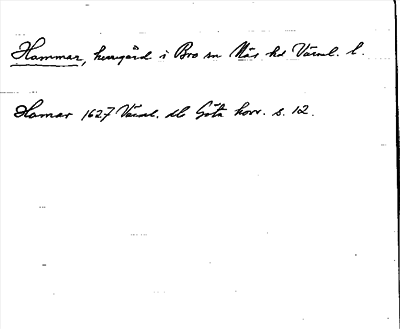 Hammar, herrgård i Bro sn Näs hd Värml. l.
Hamar 1627 Värml. dls Göta hovr. s. 12.